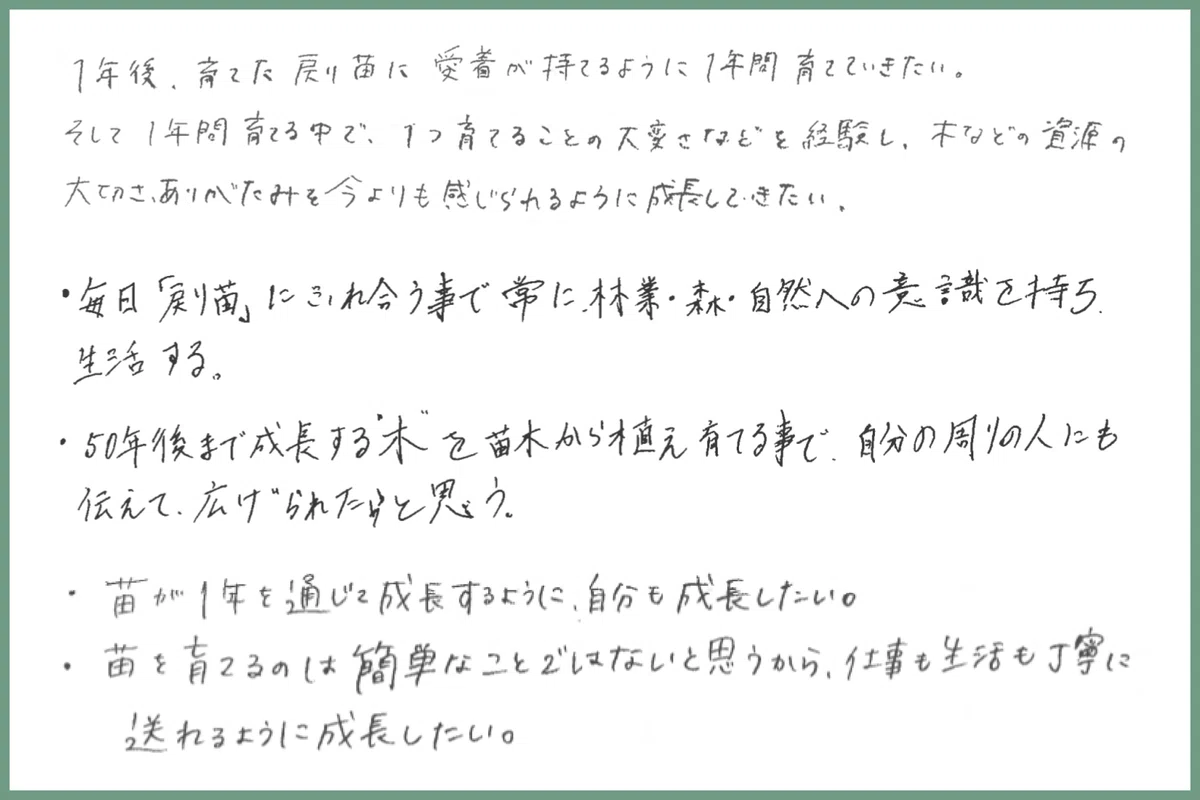 1年後、育てた戻り苗に愛着が持てるように1年間育てていきたい。
そして1年間育てる中で、1つ育てることの大変さなどを経験し、木などの資源の
大切さ、ありがたみを今よりも感じられるように成長していきたい。
・毎日「戻り苗」にふれ合う事で常に、林業・森・自然への意識を持ち、
生活する。
・50年後まで成長する“木”を苗木から植え育てる事で、自分の周りの人にも
伝えて、広げられたらと思う。
・苗が1年を通じて成長するように、自分も成長したい。
・苗を育てるのは簡単なことではないと思うから、仕事も生活も丁寧に
送れるように成長したい。